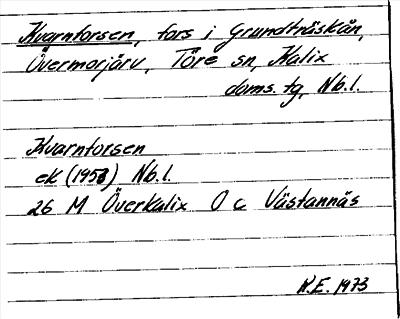 Kvarnforsen, fors i Grundträskån,
Övermorjärv, Töre sn, Kalix
doms. tg, Nb.l.
Kvarnforsen
ek (1958) Nb.l.
26 M Överkalix O c Västannäs
K.E. 1973